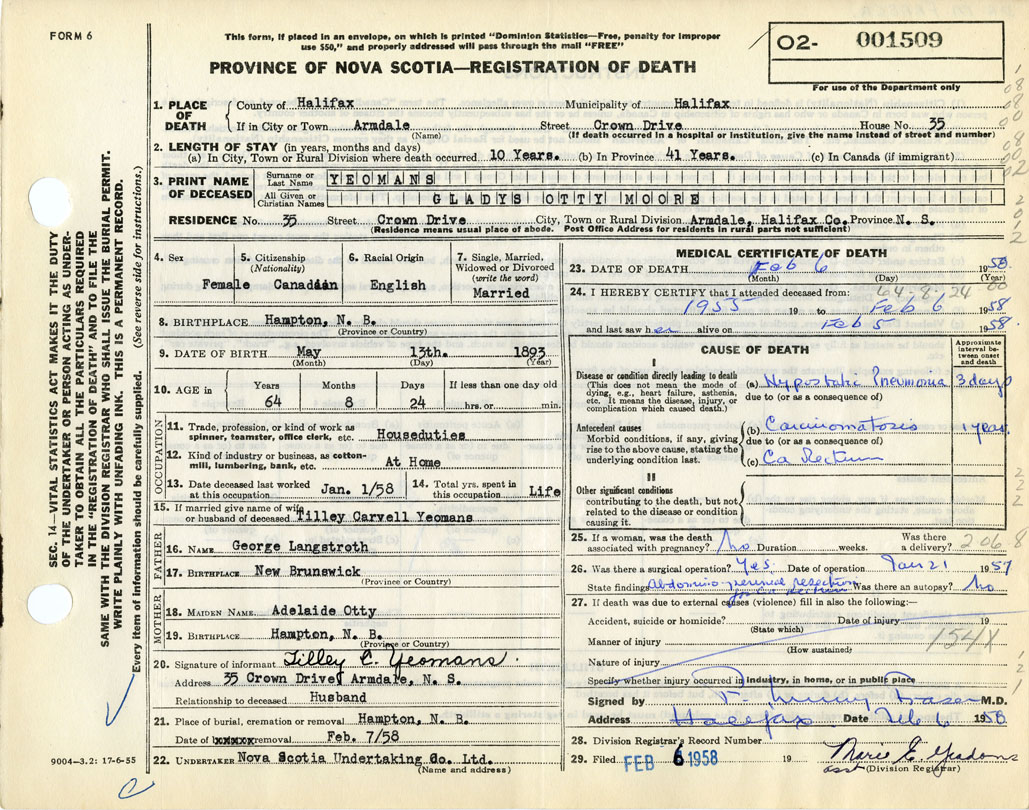 FORM 6
This form, if placed in an envelope, on which is printed "Dominion Statistics—Free, penalty for improper
use $50," and properly addressed will pass through the mail "FREE"
02- 001509
PROVINCE OF NOVA SCOTIA—REGISTRATION OF DEATH
For use of the Department only
1. PLACE OF DEATH
County of Halifax Municipality of Halifax
If in City or Town Armdale Street Crown Drive House No. 35
(Name) (If death occurred in a hospital or institution, give the name instead of street and number)
2. LENGTH OF STAY (in years, months and days)
(a) In City, Town or Rural Division where death occurred 10 Years. (b) In Province 41 Years. (c) In Canada (if immigrant)
3. PRINT NAME OF DECEASED
Surname or Last Name YEOMANS
All Given or Christian Names GLADYS OTTY MOORE
RESIDENCE No. 35 Street Crown Drive City, Town or Rural Division Armdale, Halifax Co. Province N. S.
(Residence means usual place of abode. Post Office Address for residents in rural parts not sufficient)
4. Sex
Female
5. Citizenship
(Nationality)
Canadian
6. Racial Origin
English
7. Single, Married,
Widowed or Divorced
(write the word)
Married
8. BIRTHPLACE Hampton, N. B.
(Province or Country)
9. DATE OF BIRTH May 13th. 1893
(Month) (Day) (Year)
10. AGE in Years Months Days If less than one day old
64 8 24 hrs. or min.
OCCUPATION
11. Trade, profession, or kind of work as
spinner, teamster, office clerk, etc. Houseduties
12. Kind of industry or business, as cotton-
mill, lumbering, bank, etc. At Home
13. Date deceased last worked
at this occupation. Jan. 1/58
14. Total yrs. spent in
this occupation Life
15. If married give name of wife
or husband of deceased Tilley Carvell Yeomans
FATHER
16. NAME George Langstroth
17. BIRTHPLACE New Brunswick
(Province or Country)
MOTHER
18. MAIDEN NAME Adelaide Otty
19. BIRTHPLACE Hampton, N. B.
(Province or Country)
20. Signature of informant Tilley C. Yeomans
Address 35 Crown Drive, Armdale, N. S.
Relationship to deceased Husband
21. Place of burial, cremation or removal Hampton, N. B.
Date of removal Feb. 7/58
22. UNDERTAKER Nova Scotia Undertaking Co. Ltd.
(Name and address)
MEDICAL CERTIFICATE OF DEATH
23. DATE OF DEATH Feb 6 1958.
(Month) (Day) (Year)
64-8-24
24. I HEREBY CERTIFY that I attended deceased from:
1955 19 to Feb 6 1958
and last saw her alive on Feb 5 1958.
CAUSE OF DEATH
Approximate
interval be-
tween onset
and death
I
Disease or condition directly leading to death
(This does not mean the mode of
dying, e.g., heart failure, asthenia,
etc. It means the disease, injury, or
complication which caused death.)
(a) Hypostatic Pneumonia 3 days
due to (or as a consequence of)
Antecedent causes
Morbid conditions, if any, giving
rise to the above cause, stating the
underlying condition last.
(b) Carcinomatosis 1 year
due to (or as a consequence of)
(c) Ca Rectum
II
Other significant conditions
contributing to the death, but not
related to the disease or condition
causing it.
25. If a woman, was the death
associated with pregnancy? No Duration weeks.
Was there
a delivery?
2068
26. Was there a surgical operation? Yes. Date of operation Jan 21 1957
State findings Abdomino perineal resection
for ca rectum Was there an autopsy? No
27. If death was due to external causes (violence) fill in also the following:—
Accident, suicide or homicide? Date of injury 19
(State which)
154X
Manner of injury
(How sustained)
Nature of injury
Specify whether injury occurred in industry, in home, or in public place
Signed by Fraser M.D.
Address Halifax Date Feb 6 1958
28. Division Registrar's Record Number
29. Filed FEB 6 1958 19
(Division Registrar)
SEC. 14—VITAL STATISTICS ACT MAKES IT THE DUTY
OF THE UNDERTAKER OR PERSON ACTING AS UNDER-
TAKER TO OBTAIN ALL THE PARTICULARS REQUIRED
IN THE "REGISTRATION OF DEATH" AND TO FILE THE
SAME WITH THE DIVISION REGISTRAR WHO SHALL ISSUE THE BURIAL PERMIT.
WRITE PLAINLY WITH UNFADING INK. THIS IS A PERMANENT RECORD.
Every item of information should be carefully supplied. (See reverse side for instructions.)
9004—3.2: 17-6-55